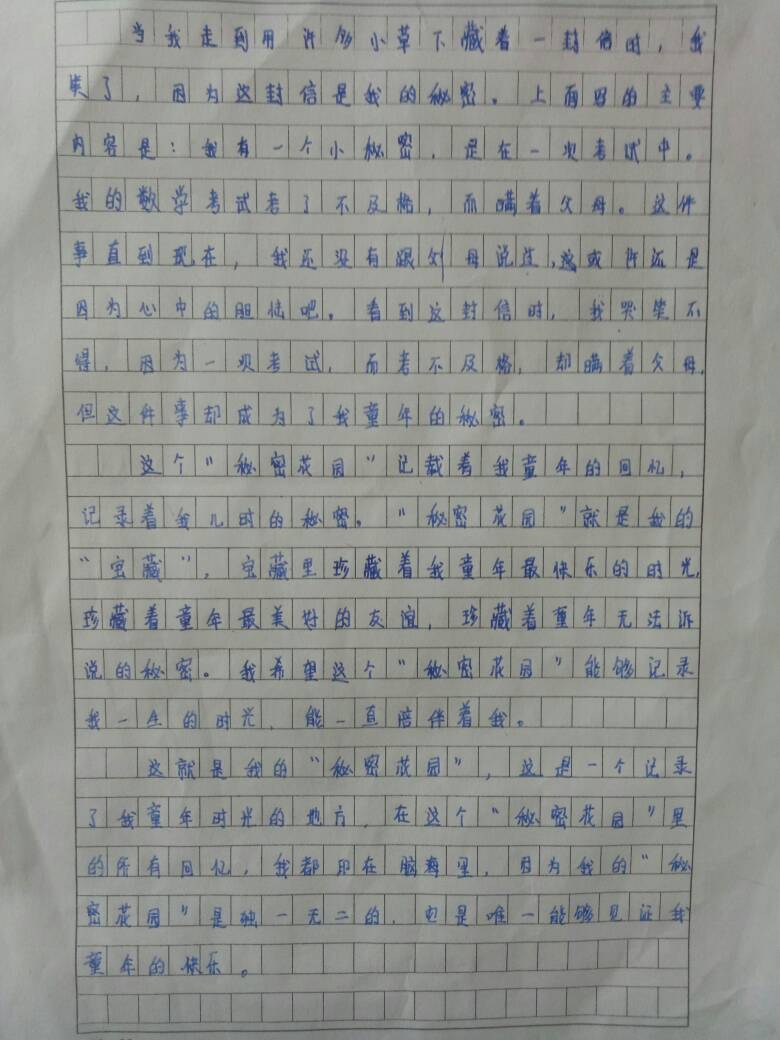 当我走到用许多小草下藏着一封信时，我
笑了，因为这封信是我的秘密。上面写的主要
内容是：我有一个小秘密，是在一次考试中。
我的数学考试考了不及格，而瞒着父母。这件
事直到现在，我还没有跟父母说过，这或许就是
因为心中的胆怯吧。看到这封信时，我哭笑不
得，因为一次考试，而考不及格，却瞒着父母，
但这件事却成为了我童年的秘密。
这个“秘密花园”记载着我童年的回忆，
记录着我儿时的秘密。“秘密花园”就是我的
“宝藏”，宝藏里珍藏着我童年最快乐的时光，
珍藏着童年最美好的友谊，珍藏着童年无法诉
说的秘密。我希望这个“秘密花园”能够记录
我一生的时光，能一直陪伴着我。
这就是我的“秘密花园”，这是一个记录
了我童年时光的地方，在这个“秘密花园”里
的所有回忆，我都印在脑海里，因为我的“秘
密花园”是独一无二的，也是唯一能够见证我
童年的快乐。